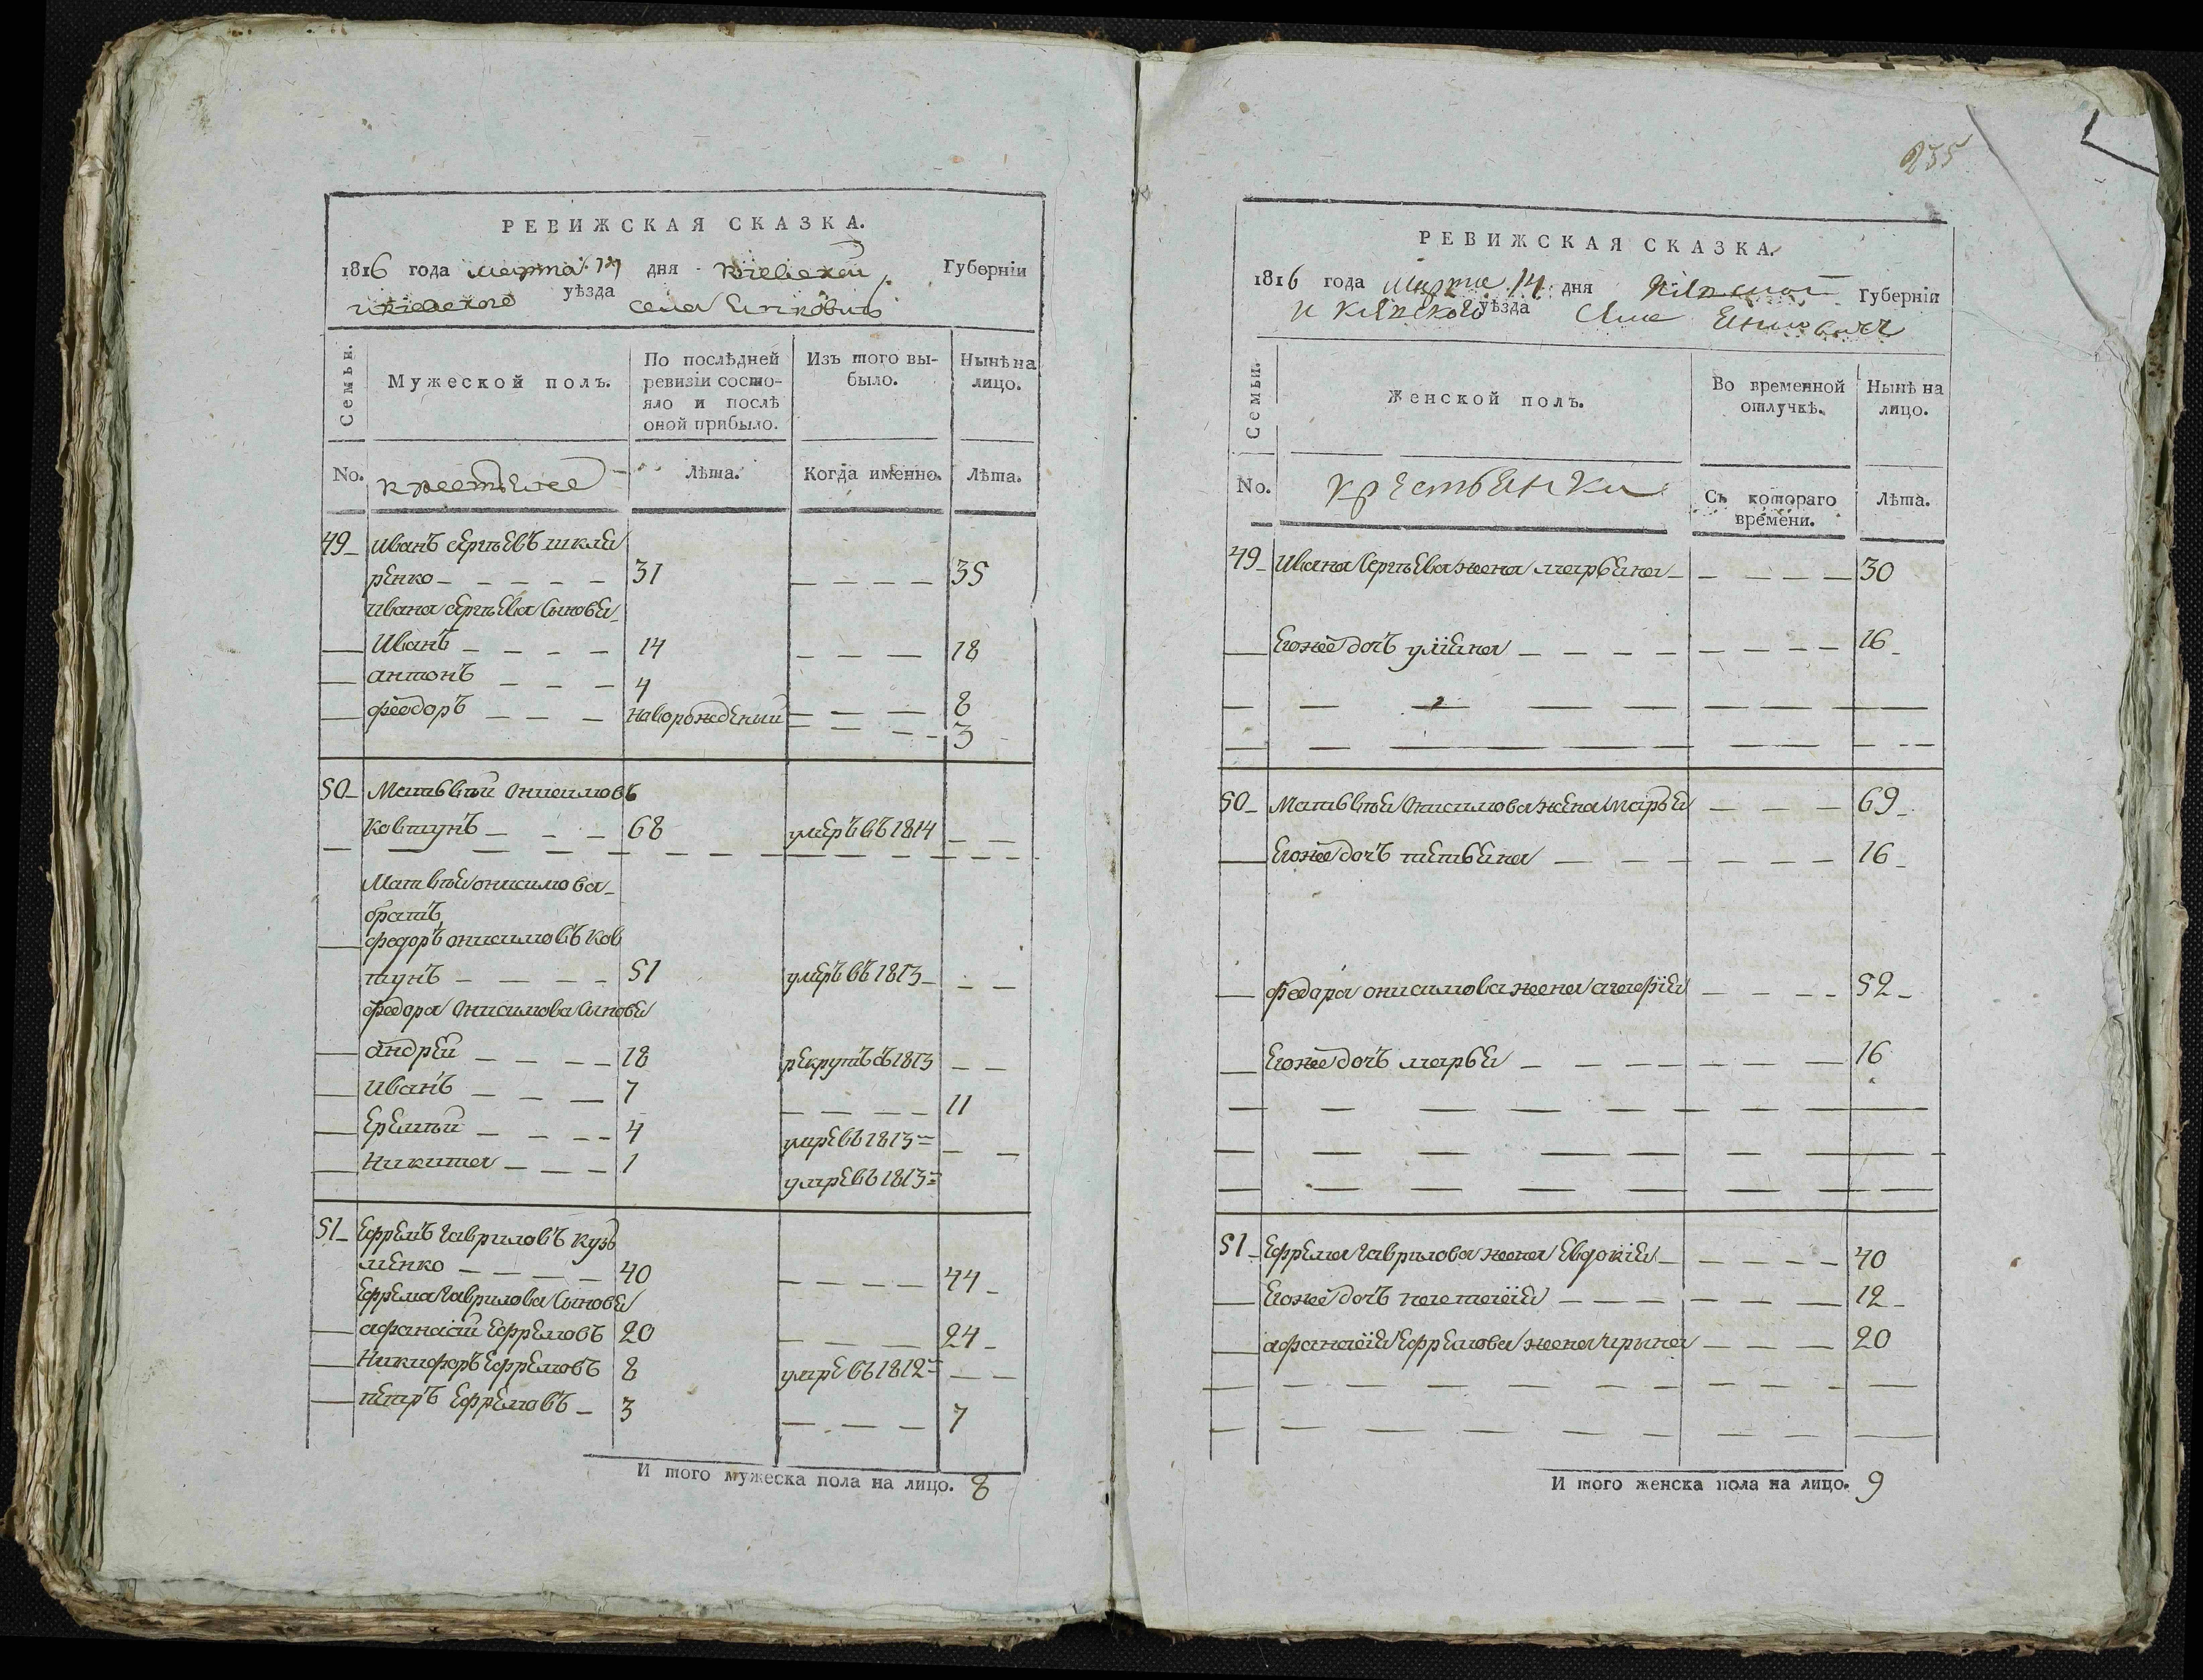 РЕВИЖСКАЯ СКАЗКА.
1816 года марта 14 дня Киевской Губерніи
и Киевского уѣзда села Янковичь
Семьи.
Мужеской полъ.
По послѣдней ревизіи состояло и послѣ оной прибыло.
Изъ того выбыло.
Нынѣ на лицо.
No. крестьяне Лѣта. Когда именно. Лѣта.
49 Иванъ сергѣевъ шкля
ренко 31 35
ивана сергѣева сыновя
Иванъ 14 18
антонъ 4 8
феодоръ новорожденый 3
50 Матьвѣй онисимовъ
ковтунъ 68 умеръ въ 1814
Матвѣя онисимова
братъ
федоръ онисимовъ ков
тунъ 51 умеръ въ 1813
федора онисимова сыновя
андрей 18 рекрутъ съ 1813
иванъ 7 11
еремѣй 4 умре въ 1813
никита 1 умре въ 1813
51 ефремъ гавриловъ кузь
менко 40 44
ефрема гаврилова сыновя
афанасій ефремовъ 20 24
никифоръ ефремовъ 8 умре въ 1812
петръ ефремовъ 3 7
И того мужеска пола на лицо. 8
235
РЕВИЖСКАЯ СКАЗКА.
1816 года марта 14 дня Губерніи
и Киевского уѣзда
Семьи.
Женской полъ.
Во временной отлучкѣ.
Нынѣ на лицо.
No. крестьянки Съ котораго времени. Лѣта.
49 Ивана сергѣева жена марьяна 30
егоже дочъ уліяна 16
50 Матьвѣя онисимова жена марья 69
егоже дочъ татьяна 16
федора онисимова жена агафія 52
егоже дочъ марья 16
51 ефрема гаврилова жена евдокія 40
егоже дочъ настасія 12
афанасія ефремова жена ирына 20
И того женска пола на лицо. 9